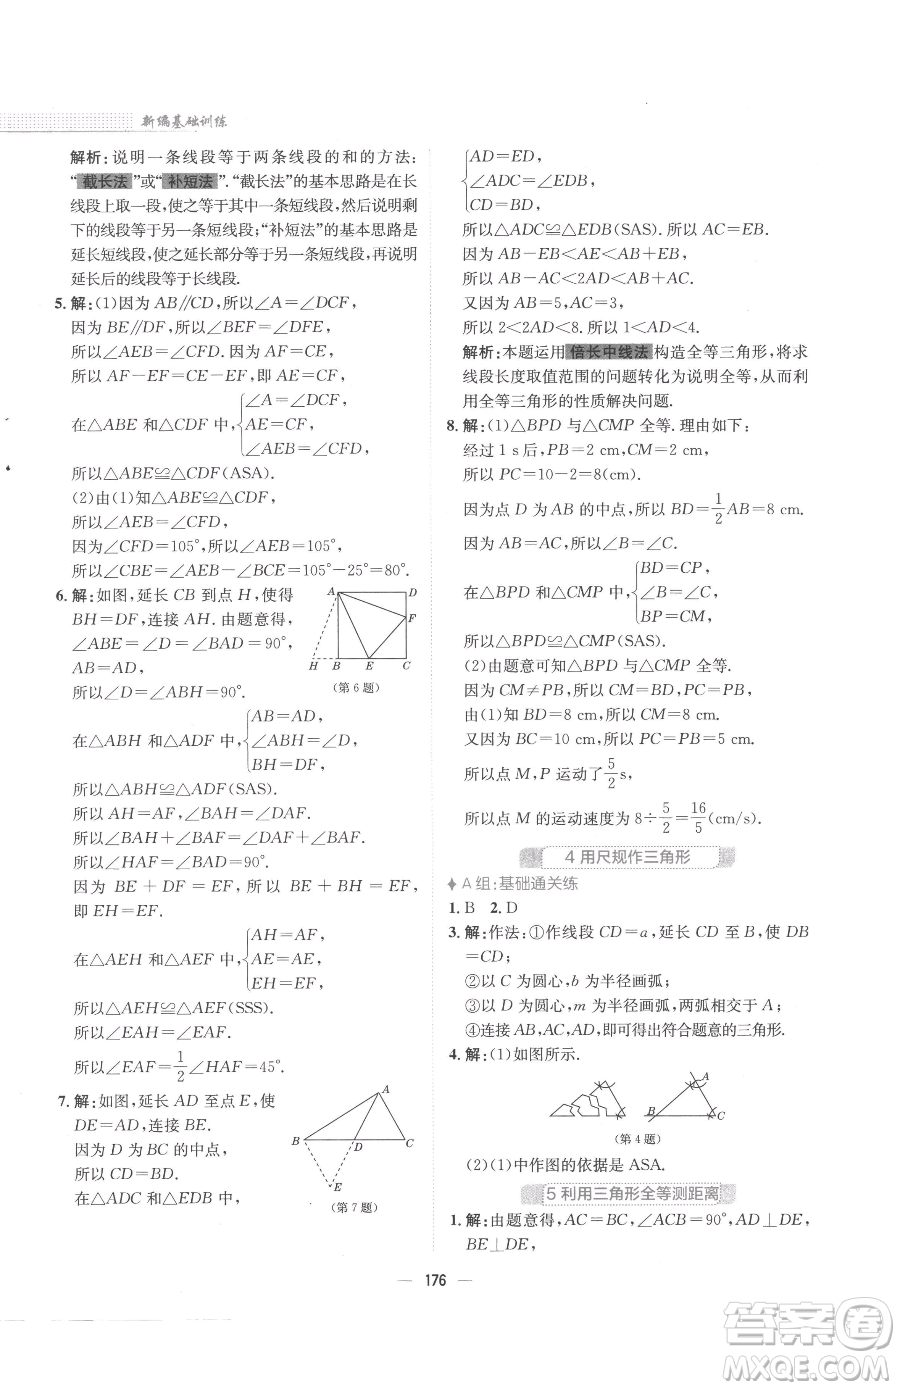 新编基础训练
解析:说明一条线段等于两条线段的和的方法:
“截长法”或“补短法”.“截长法”的基本思路是在长
线段上取一段,使之等于其中一条短线段,然后说明剩
下的线段等于另一条短线段;“补短法”的基本思路是
延长短线段,使之延长部分等于另一条短线段,再说明
延长后的线段等于长线段.
5. 解:(1)因为 AB∥CD,所以∠A=∠DCF,
因为 BE∥DF,所以∠BEF=∠DFE,
所以∠AEB=∠CFD,因为 AF=CE,
所以 AF-EF=CE-EF,即 AE=CF,
在△ABE 和△CDF 中,{∠A=∠DCF,
AE=CF,
∠AEB=∠CFD,
所以△ABE≌△CDF(ASA).
(2)由(1)知△ABE≌△CDF,
所以∠AEB=∠CFD,
因为∠CFD=105°,所以∠AEB=105°,
所以∠CBE=∠AEB-∠BCE=105°-25°=80°.
6. 解:如图,延长 CB 到点 H,使得
BH=DF,连接 AH. 由题意得,
∠ABE=∠D=∠BAD=90°,
AB=AD,
所以∠D=∠ABH=90°.
A D F H B E C
(第 6 题)
在△ABH 和△ADF 中,{AB=AD,
∠ABH=∠D,
BH=DF,
所以△ABH≌△ADF(SAS).
所以 AH=AF,∠BAH=∠DAF.
所以∠BAH+∠BAF=∠DAF+∠BAF.
所以∠HAF=∠BAD=90°.
因为 BE+DF=EF,所以 BE+BH=EF,
即 EH=EF.
在△AEH 和△AEF 中,{AH=AF,
AE=AE,
EH=EF,
所以△AEH≌△AEF(SSS).
所以∠EAH=∠EAF.
所以∠EAF=1/2∠HAF=45°.
7. 解:如图,延长 AD 至点 E,使
DE=AD,连接 BE.
因为 D 为 BC 的中点,
所以 CD=BD.
在△ADC 和△EDB 中,
A B D C E
(第 7 题)
{AD=ED,
∠ADC=∠EDB,
CD=BD,
所以△ADC≌△EDB(SAS). 所以 AC=EB.
因为 AB-BE<AE<AB+BE,
所以 AB-AC<2AD<AB+AC.
又因为 AB=5,AC=3,
所以 2<2AD<8. 所以 1<AD<4.
解析:本题运用倍长中线法构造全等三角形,将求
线段长度取值范围的问题转化为说明全等,从而利
用全等三角形的性质解决问题.
8. 解:(1)△BPD 与△CMP 全等. 理由如下:
经过 1 s 后,PB=2 cm,CM=2 cm,
所以 PC=10-2=8(cm).
因为点 D 为 AB 的中点,所以 BD=1/2AB=8 cm.
因为 AB=AC,所以∠B=∠C.
在△BPD 和△CMP 中,{BD=CP,
∠B=∠C,
BP=CM,
所以△BPD≌△CMP(SAS).
(2)由题意可知△BPD 与△CMP 全等.
因为 CM≠PB,所以 CM=BD,PC=PB,
由(1)知 BD=8 cm,所以 CM=8 cm.
又因为 BC=10 cm,所以 PC=PB=5 cm.
所以点 M,P 运动了5/2s,
所以点 M 的运动速度为 8÷5/2=16/5(cm/s).
4 用尺规作三角形
♦ A 组:基础通关练
1. B 2. D
3. 解:作法:①作线段 CD=a,延长 CD 至 B,使 DB
=CD;
②以 C 为圆心,b 为半径画弧;
③以 D 为圆心,m 为半径画弧,两弧相交于 A;
④连接 AB,AC,即可得出符合题意的三角形.
4. 解:(1)如图所示.
A B C
(第 4 题)
(2)(1)中作图的依据是 ASA.
5 利用三角形全等测距离
1. 解:由题意得,AC=BC,∠ACB=90°,AD⊥DE,
BE⊥DE,
— 176 —
答案圈
MXQE.COM